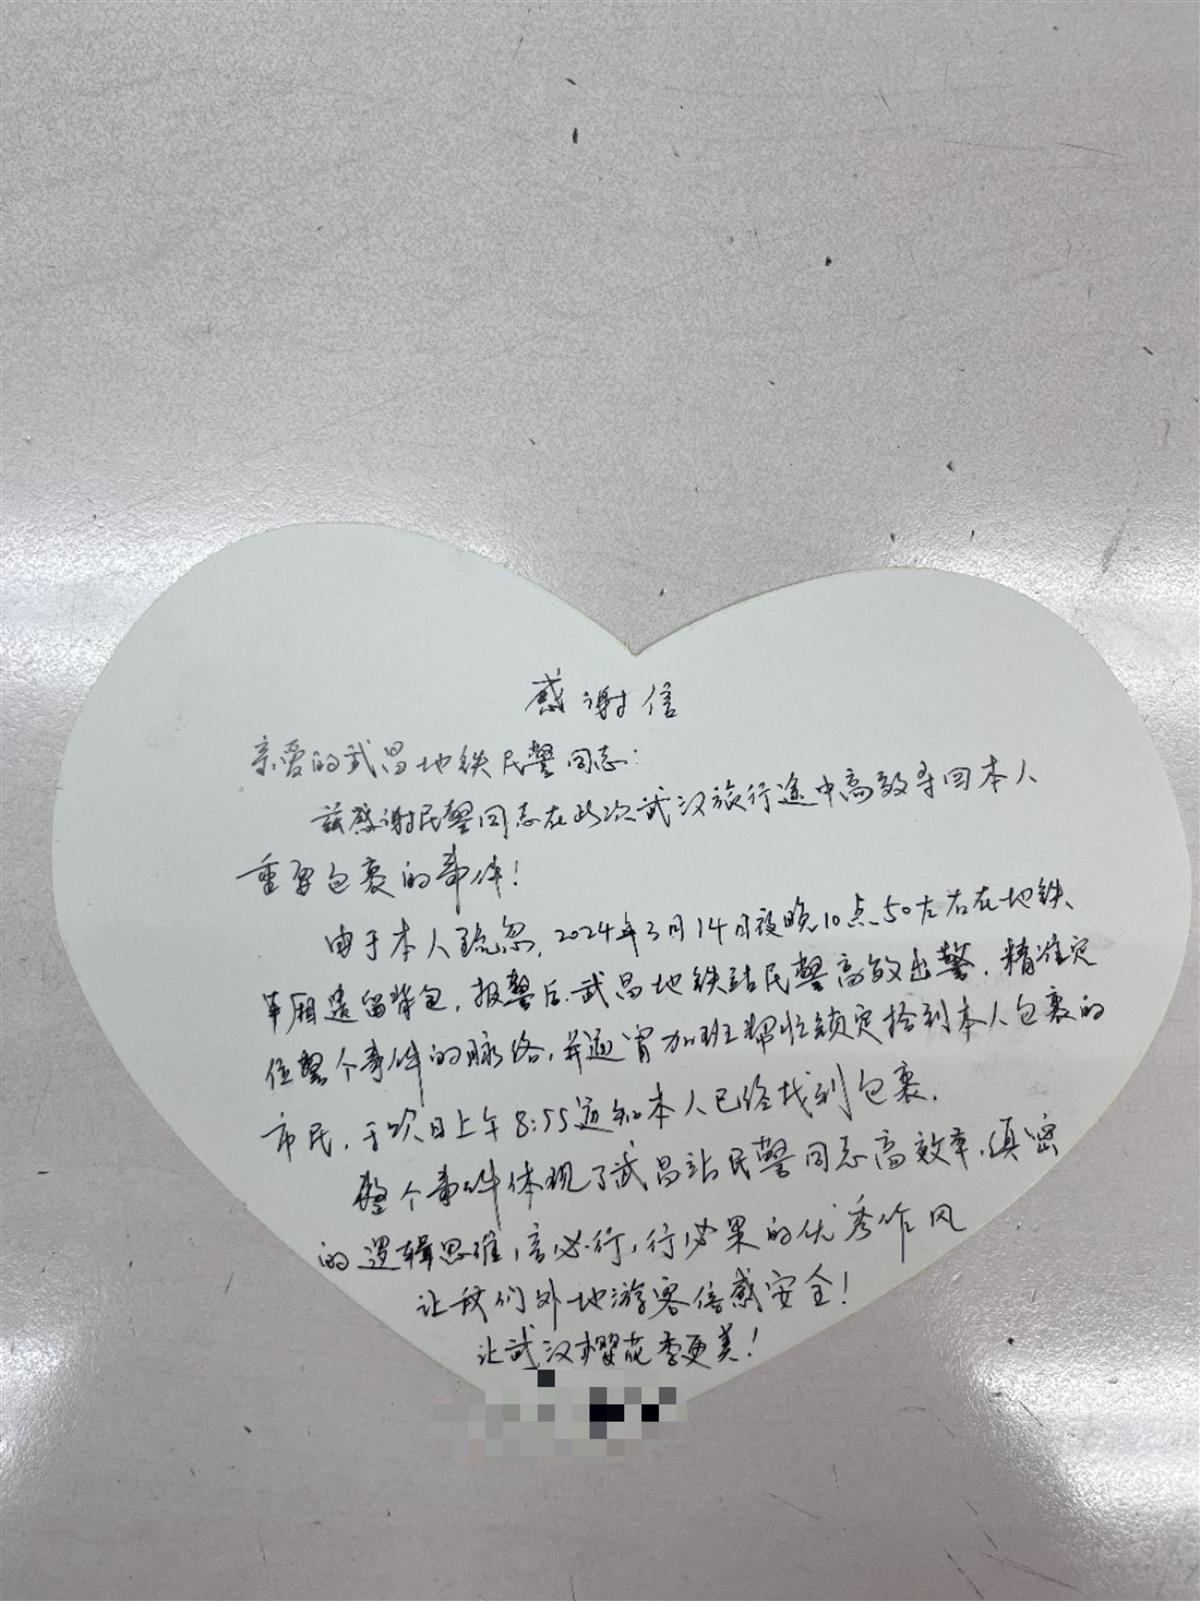 感谢信
亲爱的武昌地铁民警同志：
兹感谢民警同志在此次武汉旅行途中高效寻回本人
重要包裹的事件！
由于本人疏忽，2024年3月14日夜晚10点50左右在地铁
车厢遗留背包，报警后，武昌地铁站民警高效出警，精准定
位整个事件的脉络，并通宵加班帮忙锁定捡到本人包裹的
市民，于次日上午8:55通知本人已经找到包裹。
整个事件体现了武昌站民警同志高效率，缜密
的逻辑思维，言必行，行必果的优秀作风
让我们外地游客倍感安全！
让武汉樱花季更美！